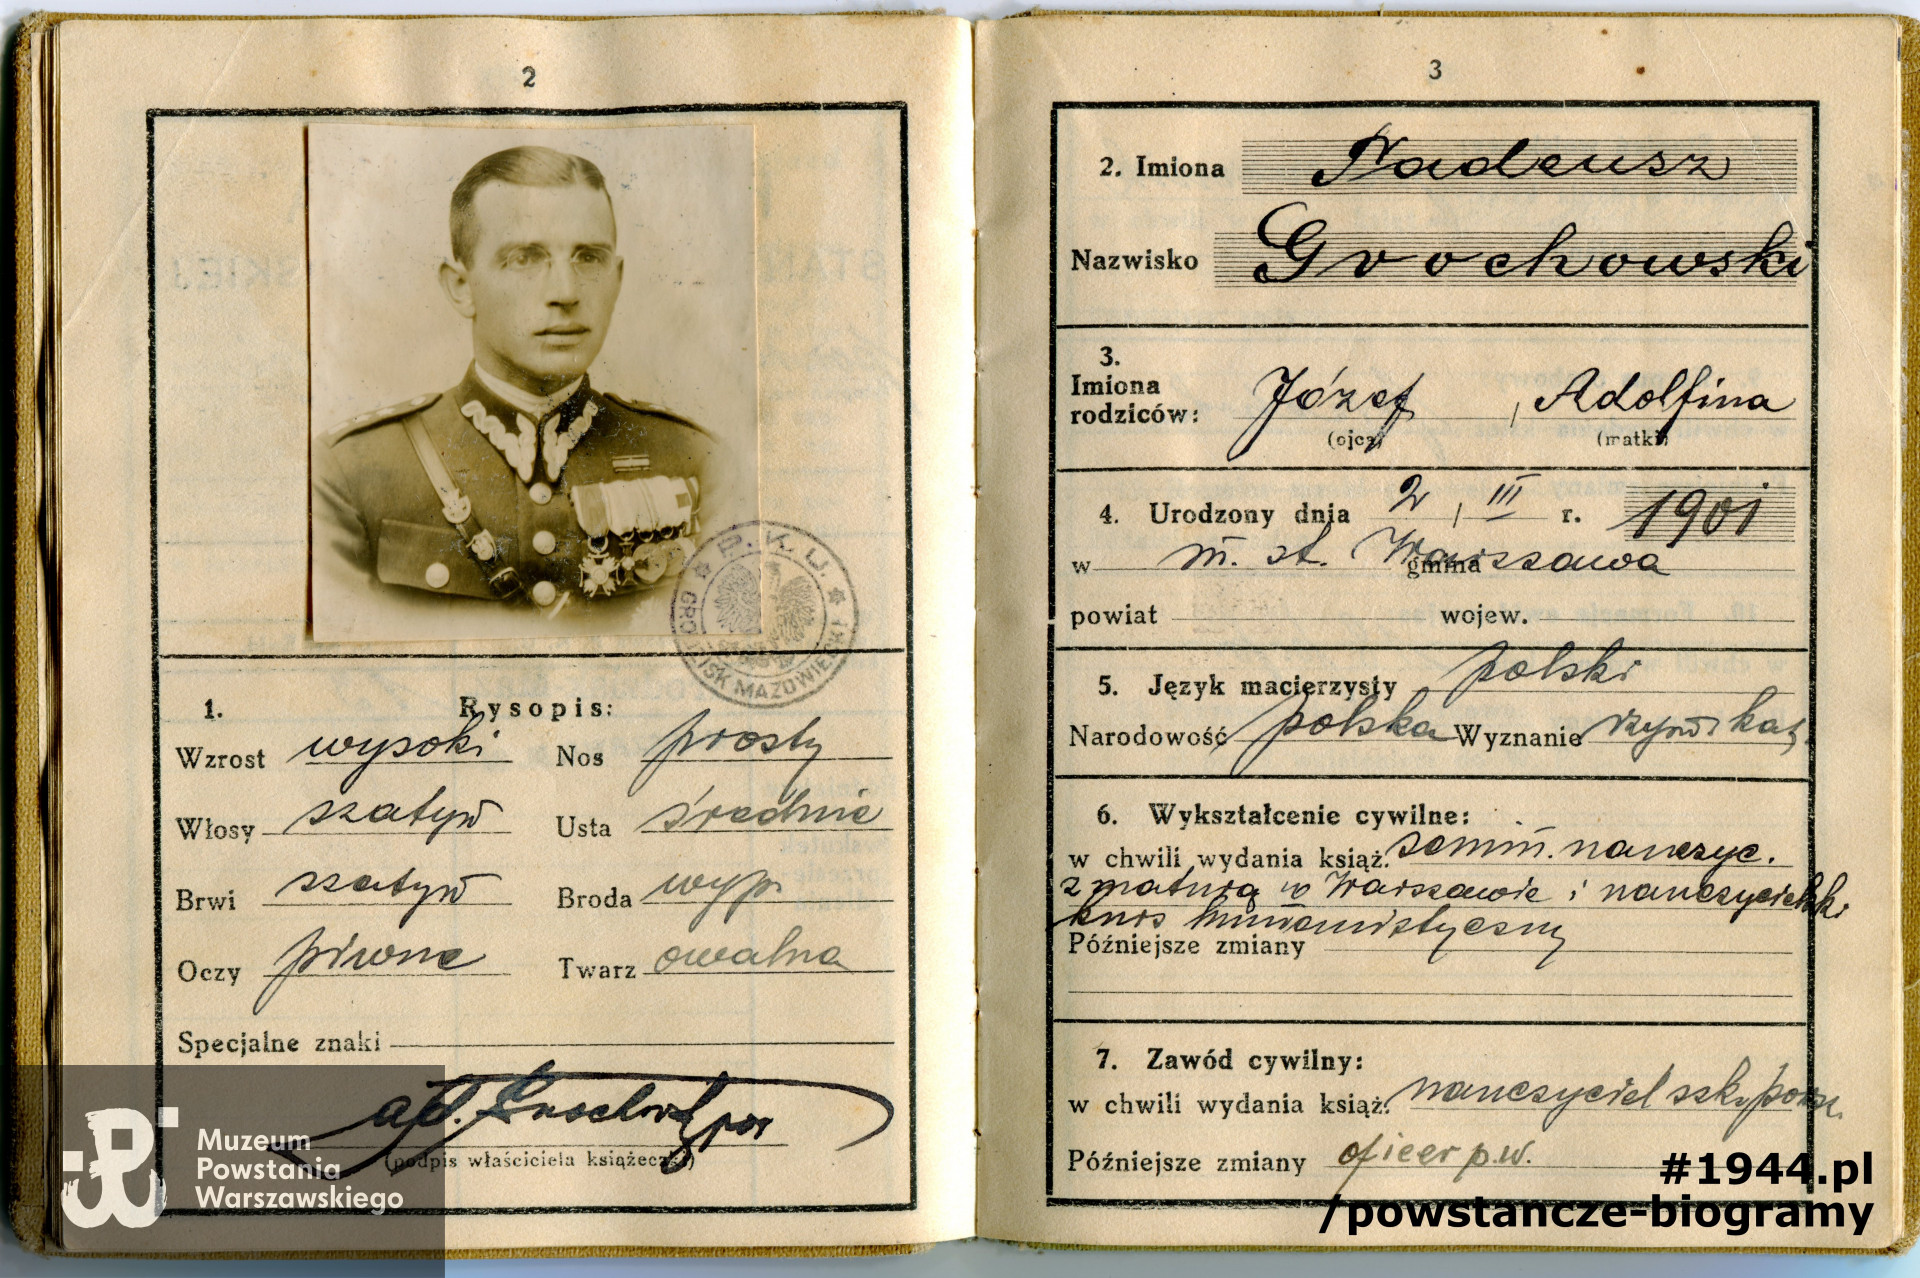 2
P. K. U.
GRODZISK MAZOWIECKI
1. Rysopis:
Wzrost wysoki Nos prosty
Włosy szatyn Usta średnie
Brwi szatyn Broda wyp.
Oczy piwne Twarz owalna
Specjalne znaki
(podpis właściciela książeczki)
Muzeum
Powstania
Warszawskiego
3
2. Imiona Tadeusz
Nazwisko Grochowski
3.
Imiona
rodziców: Józef, Adolfina
(ojca) (matki)
4. Urodzony dnia 2, III r. 1901
w m. st. Warszawa gmina
powiat wojew.
5. Język macierzysty polski
Narodowość polska Wyznanie rzym. kat.
6. Wykształcenie cywilne:
w chwili wydania książ. semin. nauczyc.
z maturą w Warszawie i nauczycielski
kurs humanistyczny
Późniejsze zmiany
7. Zawód cywilny:
w chwili wydania książ. nauczyciel szk. powsz.
Późniejsze zmiany oficer p.w.
#1944.pl
/powstancze-biogramy